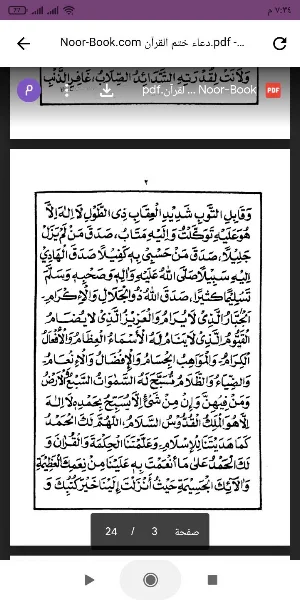 ٧:٣٤ م
Noor-Book.com دعاء ختم القرآن.pdf -...
ولانت لقدرته الشدائد الصلاب، غافر الذنب
P
Noor-Book ... لقرآن.pdf
PDF
٢
وَقَابِلِ التَّوْبِ شَدِيدِ الْعِقَابِ ذِى الطَّوْلِ لَا إِلٰهَ إِلَّا
هُوَ عَلَيْهِ تَوَكَّلْتُ وَإِلَيْهِ مَتَابُ، صَدَقَ مَنْ لَمْ يَزَلْ
جَلِيلًا، صَدَقَ مَنْ حَسْبِىَ بِهِ كَفِيلًا صَدَقَ الْهَادِى
إِلَيْهِ سَبِيلًا صَلَّى اللهُ عَلَيْهِ وَآلِهِ وَصَحْبِهِ وَسَلَّمَ
تَسْلِيمًا كَثِيرًا، صَدَقَ اللهُ ذُو الْجَلَالِ وَالْإِكْرَامِ
الْجَبَّارُ الَّذِى لَا يُرَامُ وَالْعَزِيزُ الَّذِى لَا يُضَامُ
الْقَيُّومُ الَّذِى لَا يَنَامُ لَهُ الْأَسْمَاءُ الْعِظَامُ وَالْأَفْعَالُ
الْكِرَامُ وَالْمَوَاهِبُ الْجِسَامُ وَالْإِفْضَالُ وَالْإِنْعَامُ
وَالضِّيَاءُ وَالظَّلَامُ تُسَبِّحُ لَهُ السَّمٰوَاتُ السَّبْعُ وَالْأَرْضُ
وَمَنْ فِيهِنَّ وَإِنْ مِنْ شَيْءٍ إِلَّا يُسَبِّحُ بِحَمْدِهِ لَا إِلٰهَ
إِلَّا هُوَ الْمَلِكُ الْقُدُّوسُ السَّلَامُ، اللّٰهُمَّ لَكَ الْحَمْدُ
كَمَا هَدَيْتَنَا لِلْإِسْلَامِ وَعَلَّمْتَنَا الْحِكْمَةَ وَالْقُرْآنَ وَ
لَكَ الْحَمْدُ عَلَى مَا أَنْعَمْتَ بِهِ عَلَيْنَا مِنْ نِعَمِكَ الْعَظِيمَةِ
وَآلَائِكَ الْجَسِيمَةِ حَيْثُ أَنْزَلْتَ إِلَيْنَا خَيْرَ كُتُبِكَ وَ
صفحة 3 / 24